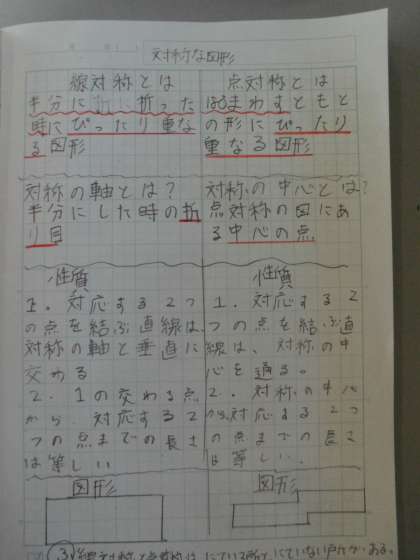 対称な図形
線対称とは
半分に折った
時にぴったり重な
る図形
点対称とは
まわすともと
の形にぴったり
重なる図形
対称の軸とは?
半分にした時の折
り目
対称の中心とは?
点対称の図にあ
る中心の点
性質
1. 対応する2つ
の点を結ぶ直線は、
対称の軸と垂直に
交わる
2. 1の交わる点
から、対応する2
つの点までの長さ
は等しい
性質
1. 対応する2
つの点を結ぶ直
線は、対称の中
心を通る。
2. 対称の中心
から対応する2つ
の点までの長さ
は等しい.
図形
図形
③線対称と点対称は、にている所と、にていない所がある。